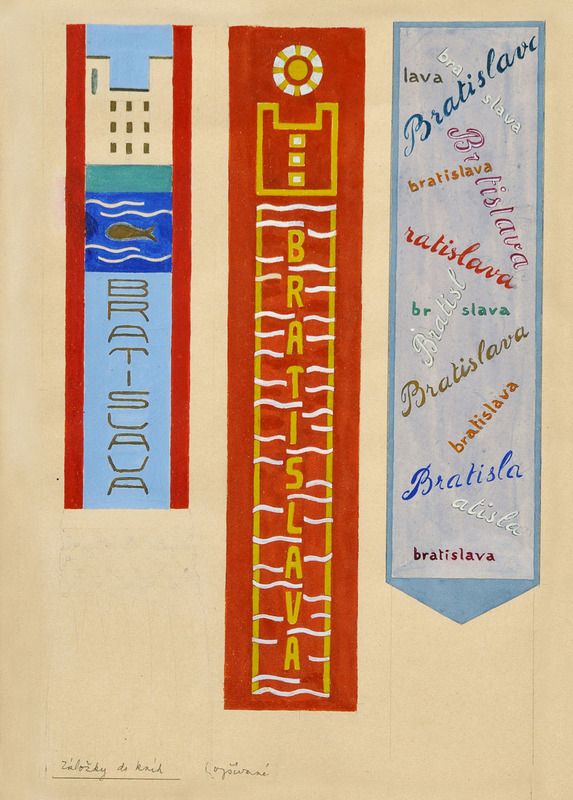 BRATISLAVA
BRATISLAVA
bra
slava
lava
Bratislava
bratislava
Bratislava
ratislava
Bratisl
br slava
Bratislava
bratislava
Bratisla
atisla
bratislava
záložky do kníh